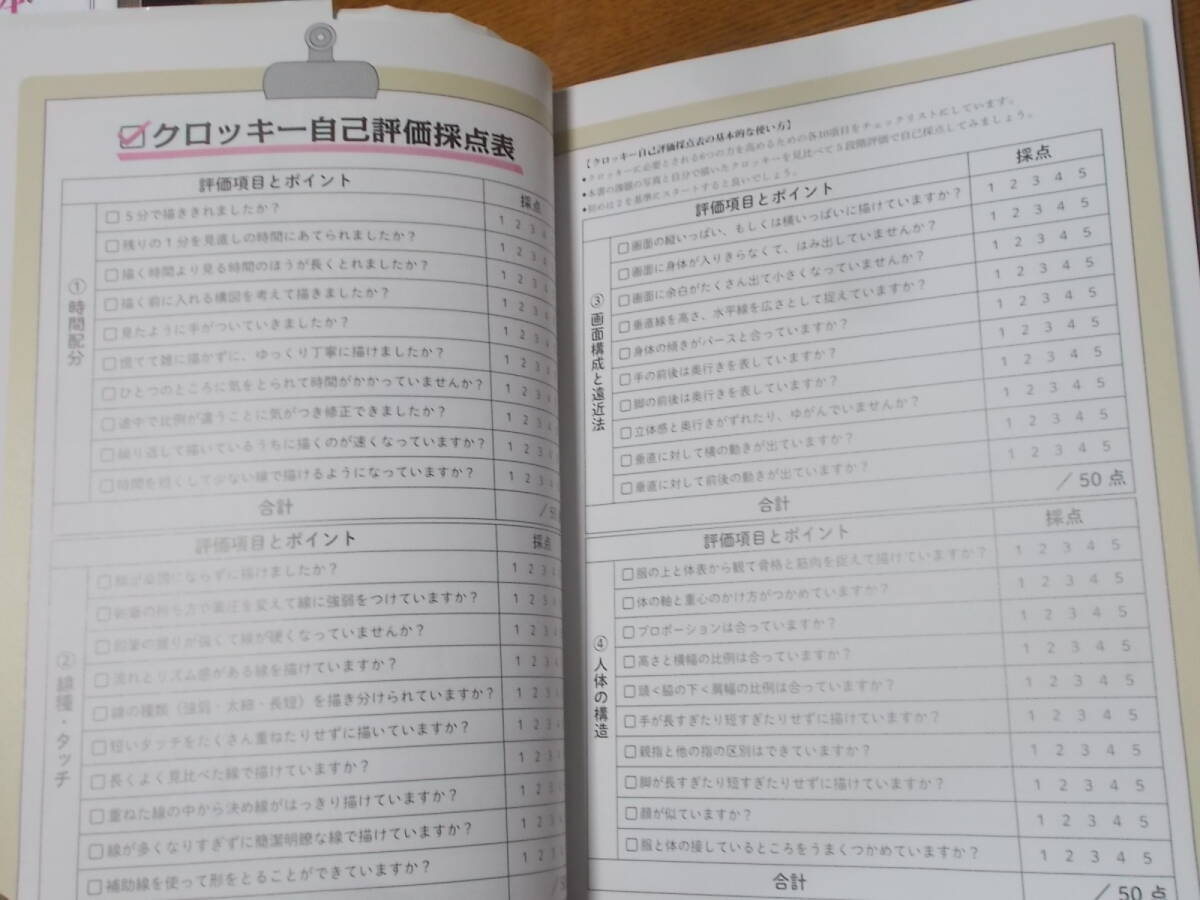 本
クロッキー自己評価採点表
評価項目とポイント
採点
①時間配分
□5分で描ききれましたか？
1 2 3 4
□残りの1分を見直しの時間にあてられましたか？
1 2 3 4
□描く時間より見る時間のほうが長くとれましたか？
1 2 3 4
□描く前に入れる構図を考えて描きましたか？
1 2 3 4
□見たように手がついていきましたか？
1 2 3 4
□慌てて雑に描かずに、ゆっくり丁寧に描けましたか？
1 2 3 4
□ひとつのところに気をとられて時間がかかっていませんか？
1 2 3 4
□途中で比例が違うことに気がつき修正できましたか？
1 2 3 4
□繰り返して描いているうちに描くのが速くなっていますか？
1 2 3 4
□時間を短くして少ない線で描けるようになっていますか？
1 2 3 4
合計
/50
評価項目とポイント
採点
②線種・タッチ
□線が単調にならずに描けましたか？
1 2 3 4
□鉛筆の持ち方や筆圧を変えて線に強弱をつけていますか？
1 2 3 4
□鉛筆の握りが強くて線が硬くなっていませんか？
1 2 3 4
□流れとリズム感がある線を描けていますか？
1 2 3 4
□線の種類（強弱・太細・長短）を描き分けられていますか？
1 2 3 4
□短いタッチをたくさん重ねたりせずに描いていますか？
1 2 3 4
□長くよく見比べた線で描けていますか？
1 2 3 4
□重ねた線の中から決め線がはっきり描けていますか？
1 2 3 4
□線が多くなりすぎずに簡潔明瞭な線で描けていますか？
1 2 3 4
□補助線を使って形をとることができていますか？
1 2 3 4
/50
【クロッキー自己評価採点表の基本的な使い方】
●クロッキーに必要とされる6つの力を高めるための各10項目をチェックリストにしています。
●本書の課題の写真と自分で描いたクロッキーを見比べて5段階評価で自己採点してみましょう。
●初めは2を基準にスタートすると良いでしょう。
評価項目とポイント
採点
③画面構成と遠近法
□画面の縦いっぱい、もしくは横いっぱいに描けていますか？
1 2 3 4 5
□画面に身体が入りきらなくて、はみ出していませんか？
1 2 3 4 5
□画面に余白がたくさん出て小さくなっていませんか？
1 2 3 4 5
□垂直線を高さ、水平線を広さとして捉えていますか？
1 2 3 4 5
□身体の傾きがパースと合っていますか？
1 2 3 4 5
□手の前後は奥行きを表していますか？
1 2 3 4 5
□脚の前後は奥行きを表していますか？
1 2 3 4 5
□立体感と奥行きがずれたり、ゆがんでいませんか？
1 2 3 4 5
□垂直に対して横の動きが出ていますか？
1 2 3 4 5
□垂直に対して前後の動きが出ていますか？
1 2 3 4 5
合計
/50点
評価項目とポイント
採点
④人体の構造
□服の上と体表から観て骨格と筋肉を捉えて描けていますか？
1 2 3 4 5
□体の軸と重心のかけ方がつかめていますか？
1 2 3 4 5
□プロポーションは合っていますか？
1 2 3 4 5
□高さと横幅の比例は合っていますか？
1 2 3 4 5
□頭＜脇の下＜肩幅の比例は合っていますか？
1 2 3 4 5
□手が長すぎたり短すぎたりせずに描けていますか？
1 2 3 4 5
□親指と他の指の区別はできていますか？
1 2 3 4 5
□脚が長すぎたり短すぎたりせずに描けていますか？
1 2 3 4 5
□顔が似ていますか？
1 2 3 4 5
□服と体の接しているところをうまくつかめていますか？
1 2 3 4 5
合計
/50点